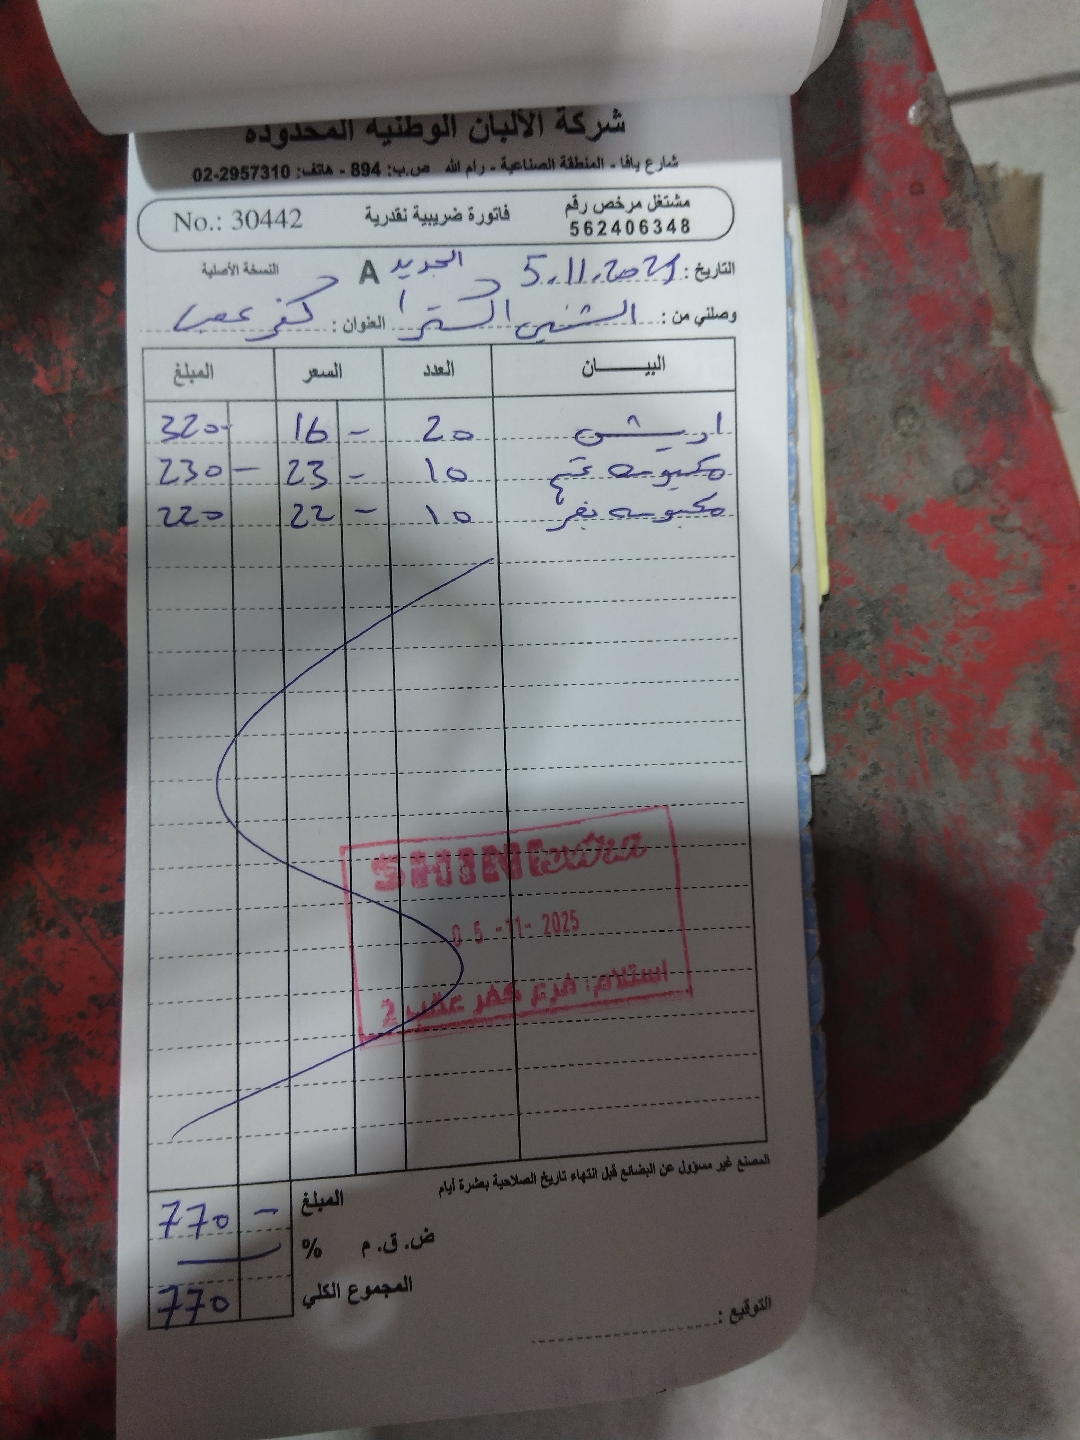 شركة الألبان الوطنية المحدودة
شارع يافا - المنطقة الصناعية - رام الله ص.ب: 894 - هاتف: 02-2957310
مشتغل مرخص رقم
562406348
فاتورة ضريبية نقدية
No.: 30442
التاريخ: 5.11.2025 الجديد A النسخة الأصلية
وصلني من: الشني اكسترا العنوان: كفر عقب
البيـــــان العدد السعر المبلغ
20 16 - 320-
مكبوسه غنم 10 23 - 230 -
مكبوسه بقر 10 22 - 220
SHINI extra
05-11-2025
استلام: فرع كفر عقب 2
المصنع غير مسؤول عن البضائع قبل انتهاء تاريخ الصلاحية بعشرة أيام
المبلغ 770 -
ض.ق.م %
المجموع الكلي 770
التوقيع: